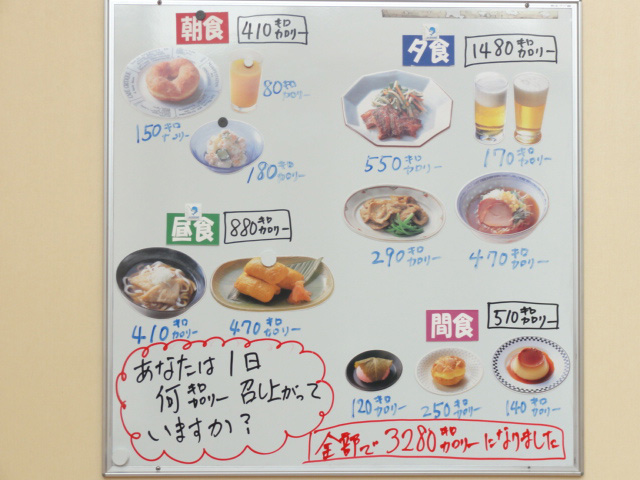 朝食
410キロカロリー
150キロカロリー
80キロカロリー
180キロカロリー
夕食
1480キロカロリー
550キロカロリー
170キロカロリー
290キロカロリー
470キロカロリー
昼食
880キロカロリー
410キロカロリー
470キロカロリー
間食
510キロカロリー
120キロカロリー
250キロカロリー
140キロカロリー
あなたは1日
何キロカロリー召し上がって
いますか?
全部で3280キロカロリーになりました